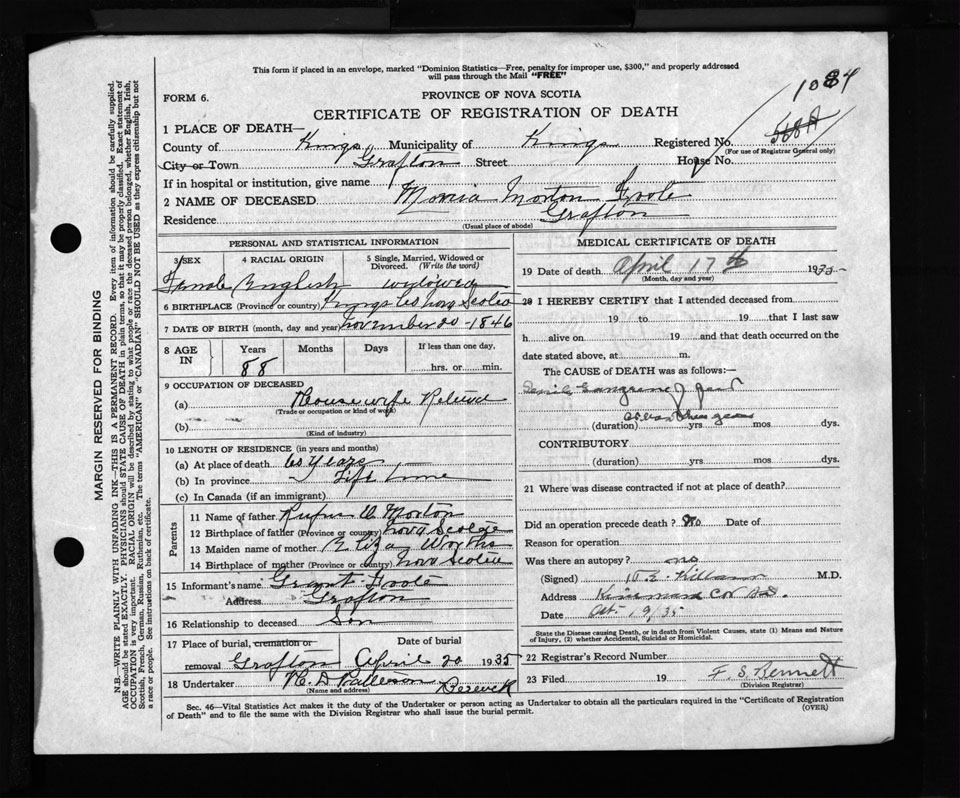 This form if placed in an envelope, marked "Dominion Statistics—Free, penalty for improper use, $300," and properly addressed
will pass through the Mail "FREE"
FORM 6.
PROVINCE OF NOVA SCOTIA
1084
CERTIFICATE OF REGISTRATION OF DEATH
1 PLACE OF DEATH—
County of Kings Municipality of Kings Registered No.
(For use of Registrar General only)
City or Town Grafton Street House No.
If in hospital or institution, give name
2 NAME OF DECEASED Morton Foote
Residence Grafton
(Usual place of abode)
PERSONAL AND STATISTICAL INFORMATION
3 SEX 4 RACIAL ORIGIN 5 Single, Married, Widowed or Divorced. (Write the word)
Female English widowed
6 BIRTHPLACE (Province or country) Kings Co Nova Scotia
7 DATE OF BIRTH (month, day and year) November 20 - 1846
8 AGE IN Years Months Days If less than one day,
88 hrs. or min.
9 OCCUPATION OF DECEASED
(a) Housewife Retired
(Trade or occupation or kind of work)
(b)
(Kind of industry)
10 LENGTH OF RESIDENCE (in years and months)
(a) At place of death 60 years
(b) In province Life time
(c) In Canada (if an immigrant)
Parents
11 Name of father Rufus W Morton
12 Birthplace of father (Province or country) Nova Scotia
13 Maiden name of mother Eliza
14 Birthplace of mother (Province or country) Nova Scotia
15 Informant's name Grant Foote
Address Grafton
16 Relationship to deceased Son
17 Place of burial, cremation or Date of burial
removal Grafton April 20 1935
18 Undertaker Berwick
(Name and address)
MEDICAL CERTIFICATE OF DEATH
19 Date of death April 17th 1935
(Month, day and year)
20 I HEREBY CERTIFY that I attended deceased from
19 to 19 that I last saw
h alive on 19 and that death occurred on the
date stated above, at m.
The CAUSE OF DEATH was as follows:—
Senile Gangrene
(duration) yrs mos dys.
CONTRIBUTORY
(duration) yrs mos dys.
21 Where was disease contracted if not at place of death?
Did an operation precede death? No Date of
Reason for operation
Was there an autopsy? no
(Signed) M.D.
Address
Date 9/35
State the Disease causing Death, or in death from Violent Causes, state (1) Means and Nature
of Injury, (2) whether Accidental, Suicidal or Homicidal.
22 Registrar's Record Number
23 Filed 19 F. S. Bennett
(Division Registrar)
Sec. 46—Vital Statistics Act makes it the duty of the Undertaker or person acting as Undertaker to obtain all the particulars required in the "Certificate of Registration
of Death" and to file the same with the Division Registrar who shall issue the burial permit.
(OVER)
MARGIN RESERVED FOR BINDING
N.B.—WRITE PLAINLY WITH UNFADING INK—THIS IS A PERMANENT RECORD. Every item of information should be carefully supplied.
AGE should be stated EXACTLY. PHYSICIANS should STATE CAUSE OF DEATH in plain terms, so that it may be properly classified. Exact statement of
OCCUPATION is very important. RACIAL ORIGIN will be described by stating to what people or race the deceased person belonged, whether English, Irish,
Scottish, French, German, Russian, Ruthenian, etc. The terms "AMERICAN" or "CANADIAN" SHOULD NOT BE USED as they express citizenship but not
a race or people. See instructions on back of certificate.